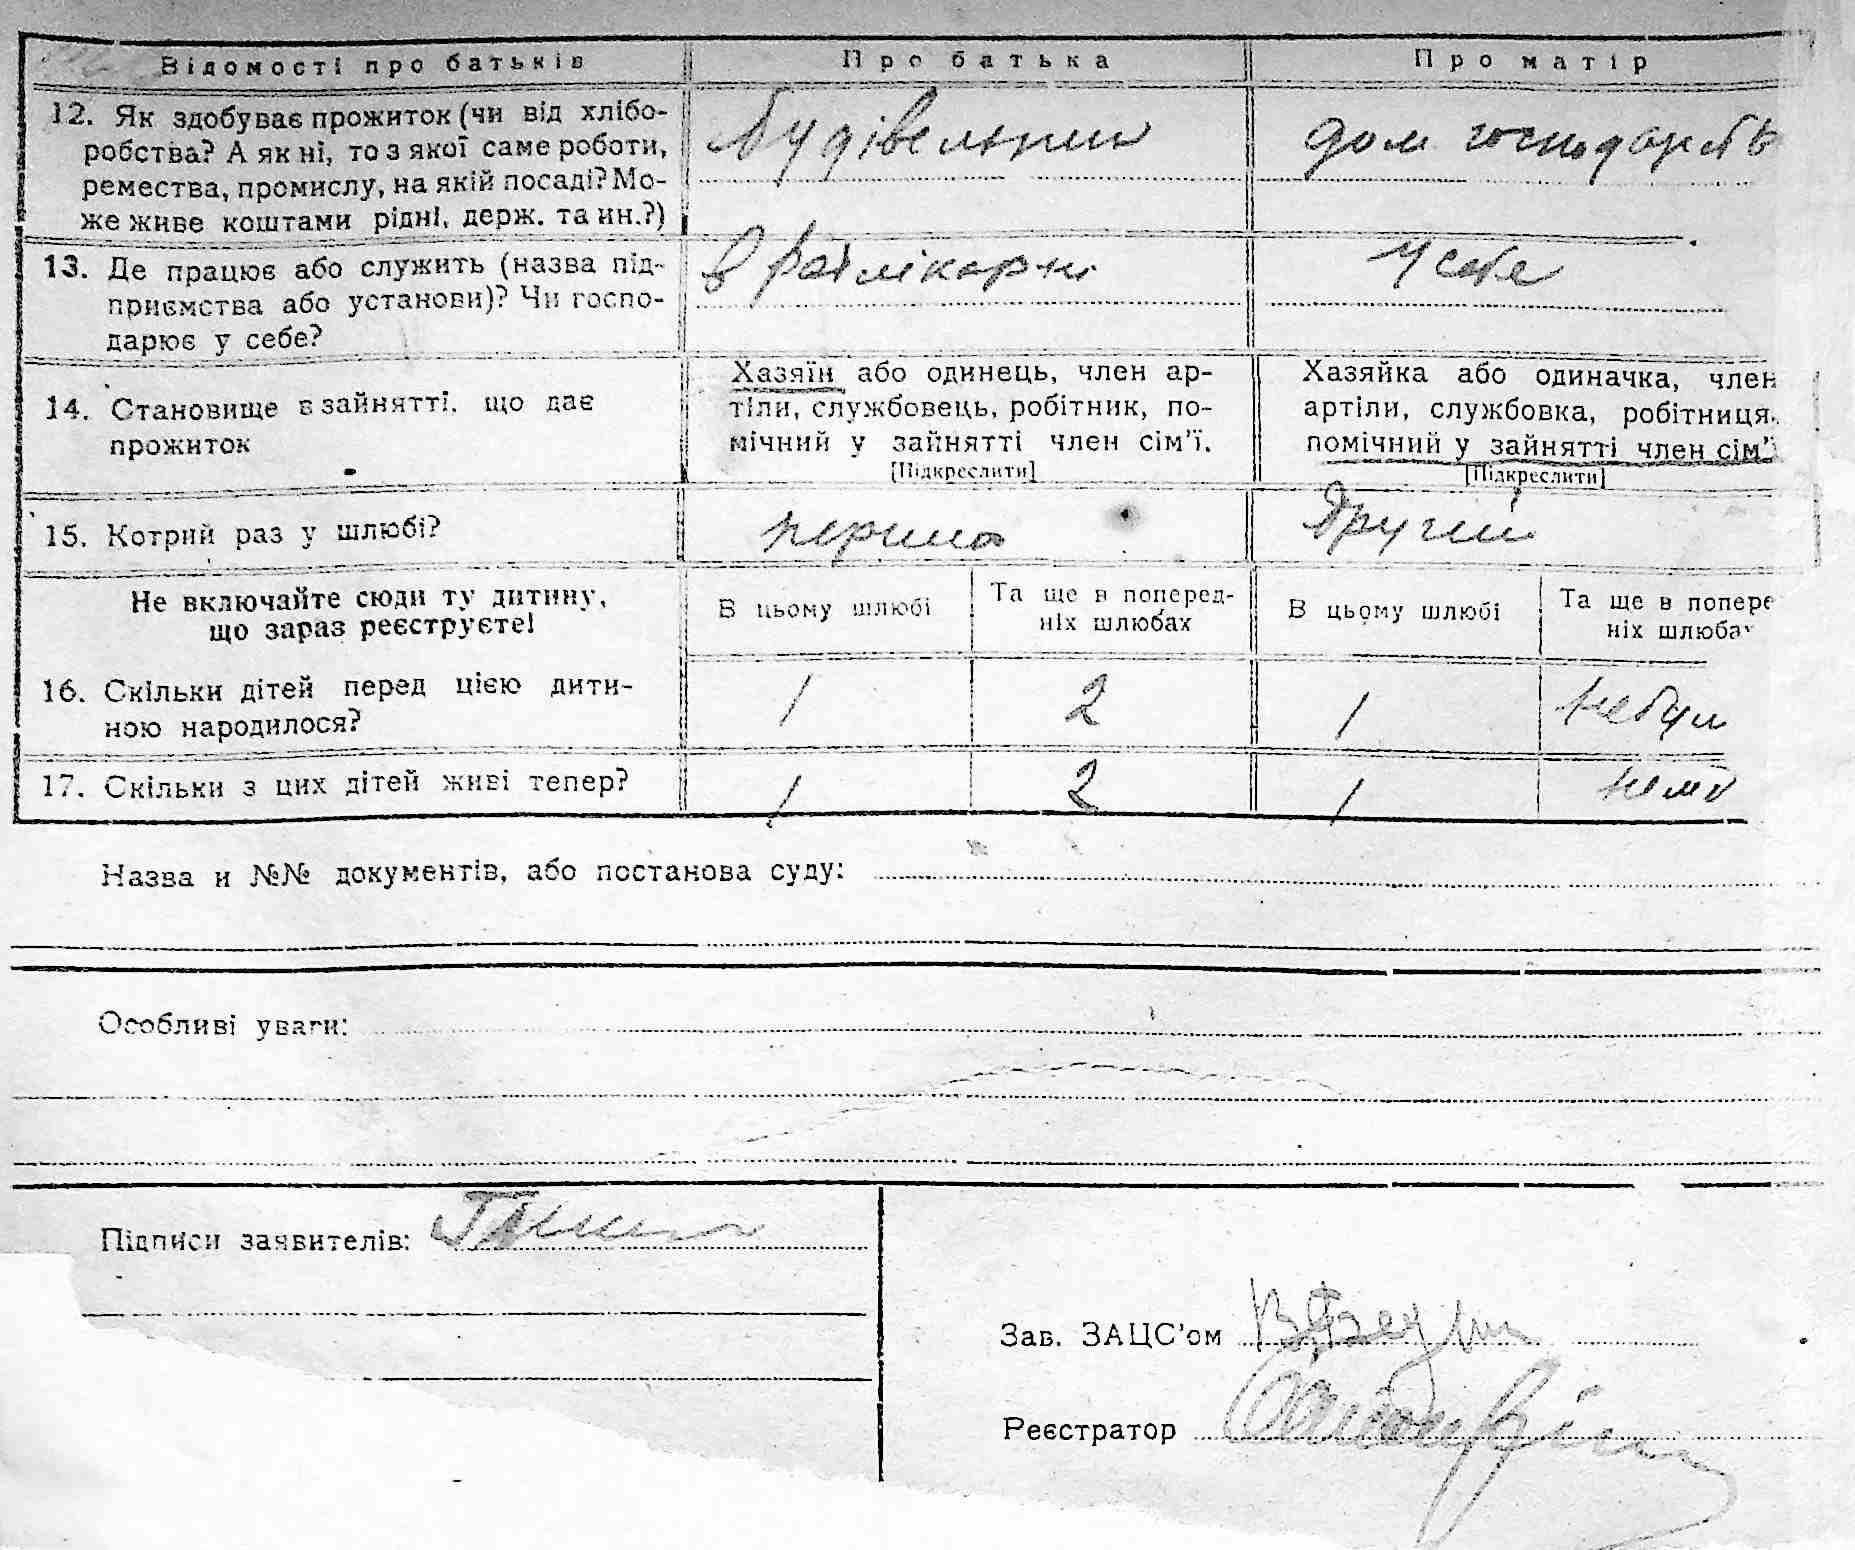 Відомості про батьків Про батька Про матір
12. Як здобуває прожиток (чи від хлібо-
робства? А як ні, то з якої саме роботи,
ремества, промислу, на якій посаді? Мо-
же живе коштами рідні, держ. та ин.?)
будівельник
дом господарств
13. Де працює або служить (назва під-
приємства або установи)? Чи госпо-
дарює у себе?
в райлікарні
У себе
14. Становище в зайнятті, що дає
прожиток
Хазяїн або одинець, член ар-
тіли, службовець, робітник, по-
мічний у зайнятті член сім'ї.
[Підкреслити]
Хазяйка або одиначка, член
артіли, службовка, робітниця,
помічний у зайнятті член сім'ї
[Підкреслити]
15. Котрий раз у шлюбі?
Другий
Не включайте сюди ту дитину,
що зараз реєструєте!
В цьому шлюбі
Та ще в поперед-
ніх шлюбах
В цьому шлюбі
Та ще в попере
ніх шлюбах
16. Скільки дітей перед цією дити-
ною народилося?
1 2 1 небули
17. Скільки з цих дітей живі тепер?
1 2 1 нема
Назва и №№ документів, або постанова суду:
Особливі уваги:
Підписи заявителів:
Зав. ЗАЦС'ом
Реєстратор